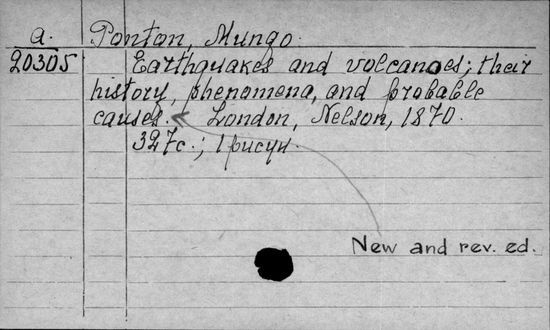 a. Ponton, Mungo.
20305 Earthquakes and volcanoes; their
history, phenomena, and probable
causes. London, Nelson, 1870.
327с.; 1 рисун.
New and rev. ed.